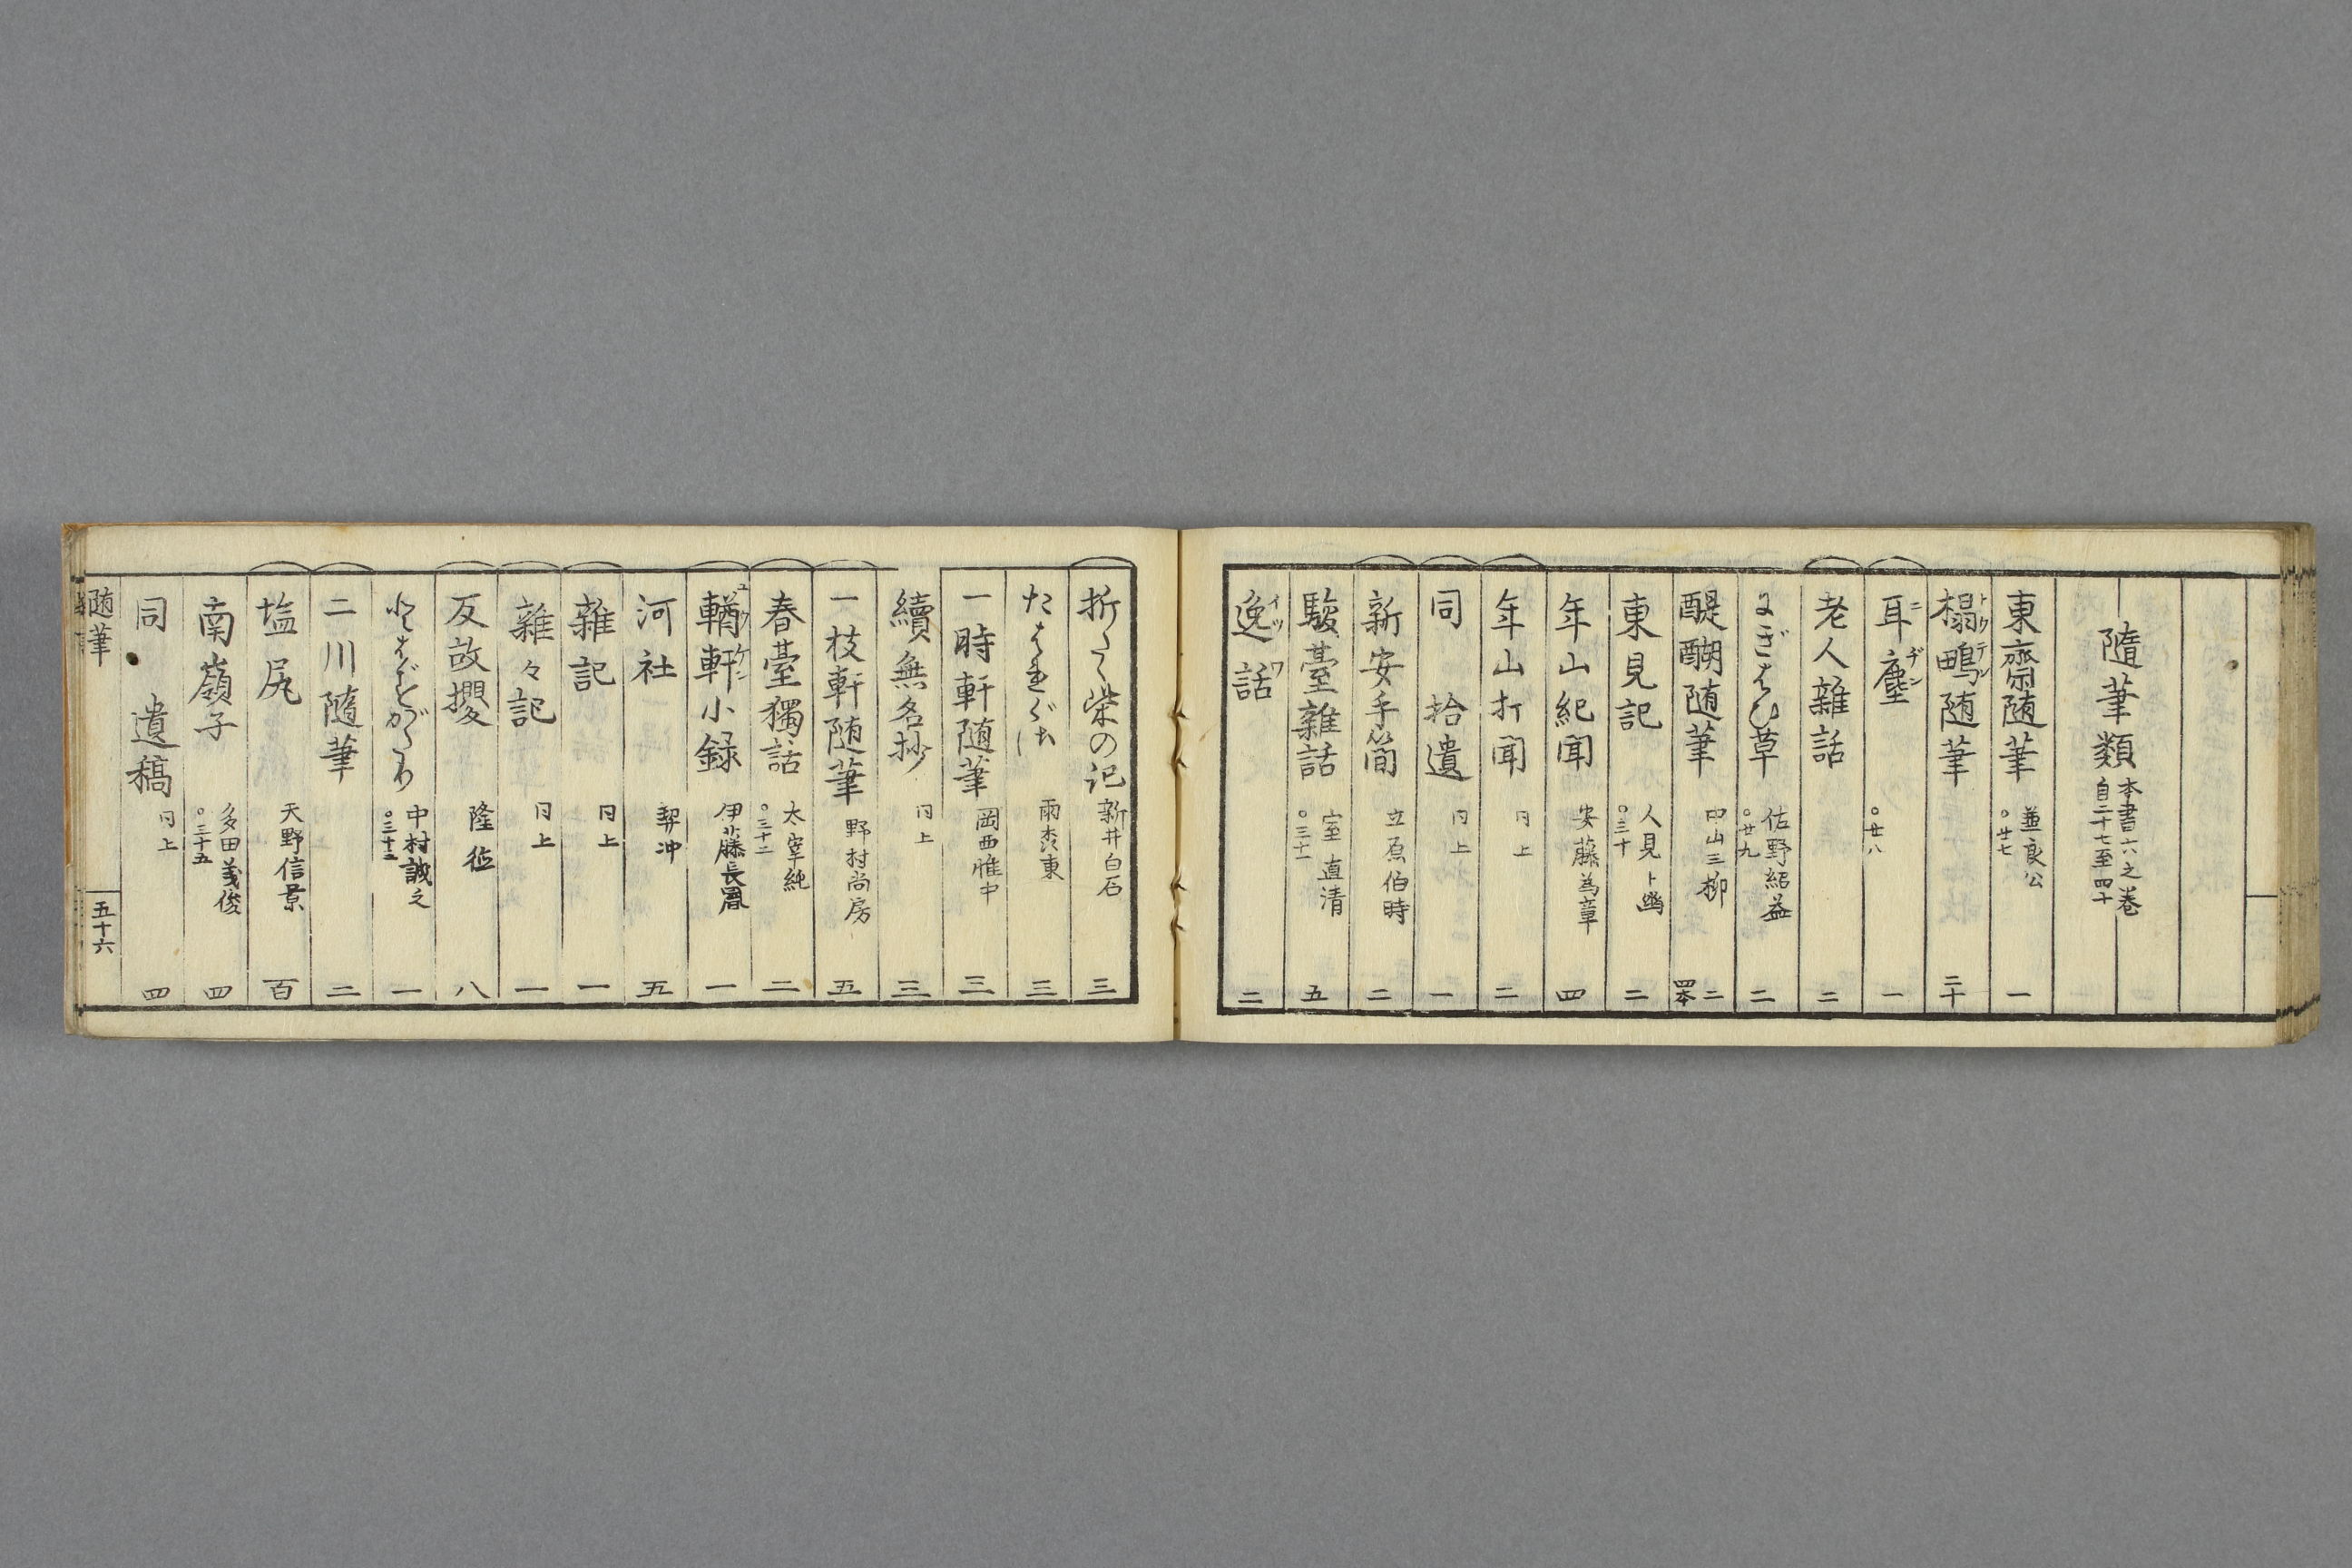 隨筆類 本書六之巻
自二十七至四十
東齋随筆 兼良公 ○廿七 一
榻鴫随筆 二十
耳塵 ニヂン ○廿八 一
老人雑話 二
にぎはひ草 佐野紹益 ○廿九 二
醍醐随筆 中山三柳 二 四本
東見記 人見卜幽 ○三十 二
年山紀聞 安藤為章 四
年山打聞 同上 二
同 拾遺 同上 一
新安手簡 立原伯時 二
駿臺雜話 室直清 ○三十一 五
逸話 イツワ 二
折たく柴の記 新井白石 三
たはれぐさ 雨森東 三
一時軒随筆 岡西惟中 三
續無名抄 同上 三
一枝軒随筆 野村尚房 五
春臺獨話 太宰純 ○三十二 二
輶軒小録 ユウケン 伊藤長胤 一
河社 契冲 五
雜記 同上 一
雜々記 同上 一
反故攫 隆 八
中村誠之 一
二川隨筆 二
塩尻 天野信景 百
南嶺子 多田義俊 ○三十五 四
同 遺稿 同上 四
随筆 五十六